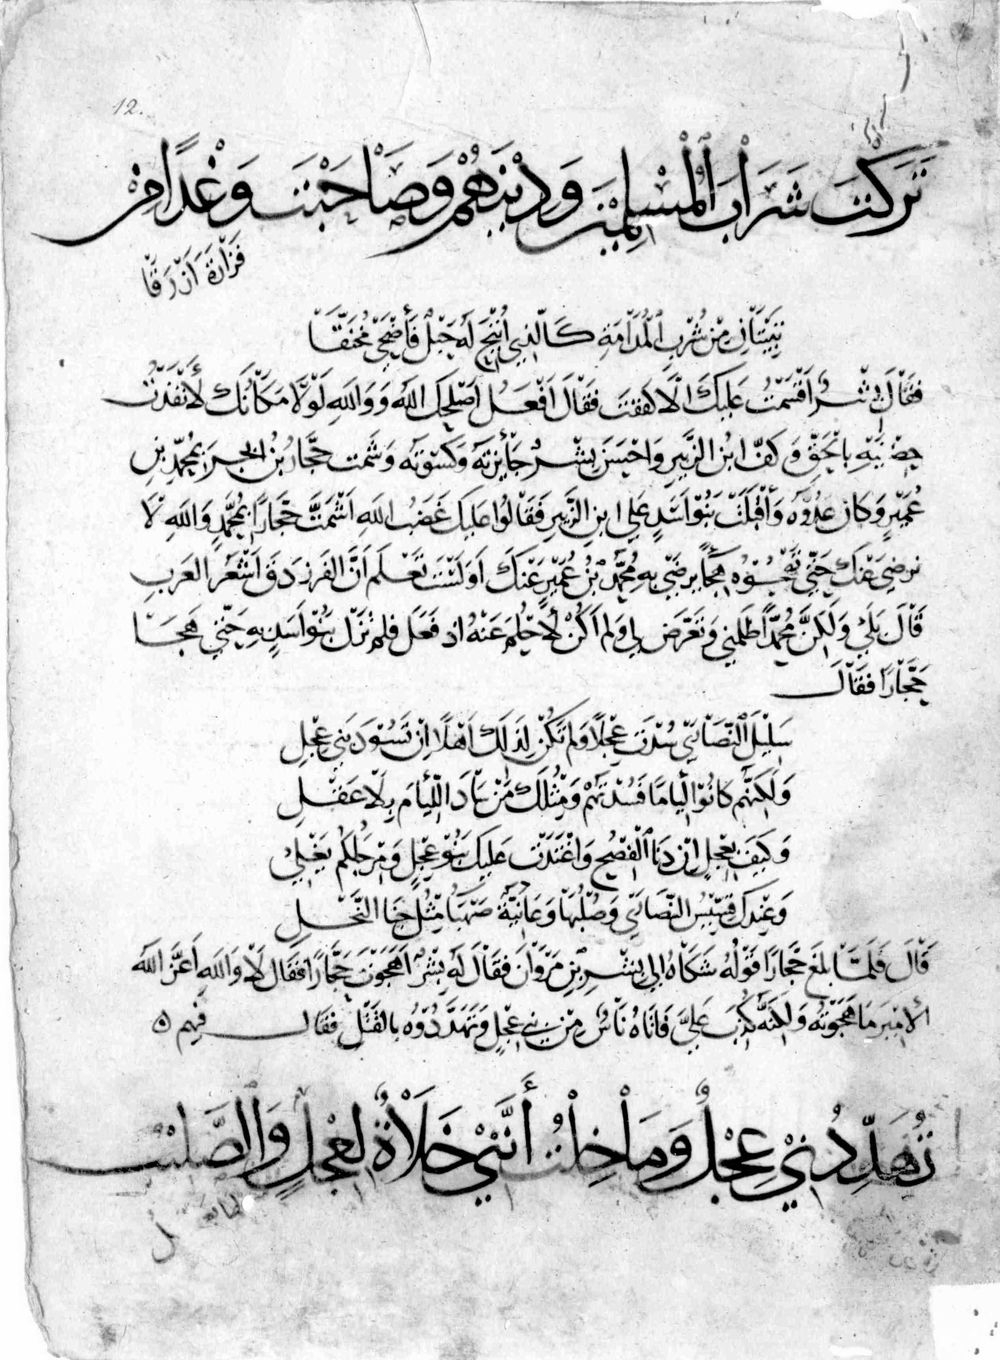 12.
تَرَكْتَ شَرَابَ الْمُسْلِمِينَ وَدِينَهُمْ وَصَاحَبْتَ وَغْدًا مِنْ
فَزَارَةَ أَزْرَقَا
تَبِيتَانِ مِنْ شُرْبِ الْمُدَامَةِ كَالَّذِي أُتِيحَ لَهُ حَبْلٌ فَأَضْحَى مُخَنَّقَا
فقال بشر أقسمت عليك الا كففت فقال افعل اصلحك الله ووالله لولا مكانك لأنفذت
حضنيه بالحق وكف ابن الزبير واحسن بشر جائزته وكسوته وشمت حجار بن ابجر بمحمد بن
عمير وكان عدوه وأقبلت بنو اسد على ابن الزبير فقالوا عليك غضب الله اشمت حجارا بمحمد والله لا
نرضى عنك حتى تهجوه هجاء يرضى به محمد بن عمير عنك اولست تعلم ان الفرزدق اشعر العرب
قال بلى ولكن محمدا ظلمني وتعرض لي ولم اكن لأحلم عنه اذ فعل فلم تزل بنو اسد به حتى هجا
حجارا فقال
سَلِيلَ النَّصَارَى سُدْتَ عِجْلًا وَلَمْ تَكُنْ لِذَلِكَ أَهْلًا انْ تَسُودَ بَنِي عِجْلِ
وَلَكِنَّهُمْ كَانُوا لِئَامًا فَسُدْتَهُمْ وَمِثْلُكَ مَنْ سَادَ اللِّئَامَ بِلَا عَقْلِ
وَكَيْفَ بِعِجْلٍ إِنْ دَنَا الْفِصْحُ وَاغْتَدَتْ عَلَيْكَ بَنُو عِجْلٍ وَمِرْجَلُكُمْ يَغْلِي
وَعِنْدَكَ قِسِّيسُ النَّصَارَى وَصُلْبُهَا وَعَانِيَّةٌ صَهْبَاءُ مِثْلُ جَنَا النَّحْلِ
قال فلما بلغ حجارا قوله شكاه الى بشر بن مروان فقال له بشر اهجوت حجارا فقال لا والله اعز الله
الامير ما هجوته ولكنه كذب علي فاتاه ناس من بني عجل وتهددوه بالقتل فقال فيهم ٥
تُهَدِّدُنِي عِجْلٌ وَمَا خِلْتُ أَنَّنِي خَلَاةٌ لِعِجْلٍ وَالصَّلِيبُ
لها بعل